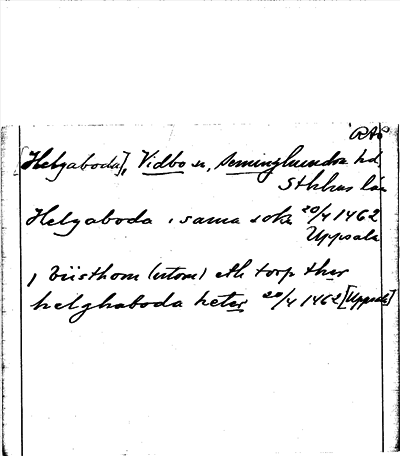 RAP
[Helgaboda], Vidbo sn, Seminghundra hd
Sthlms län
Helgaboda i sama sokn 20/4 1462
Uppsala
i Viisthom (utom) eth torp ther
helghaboda heter 20/4 1462 [Uppsala]